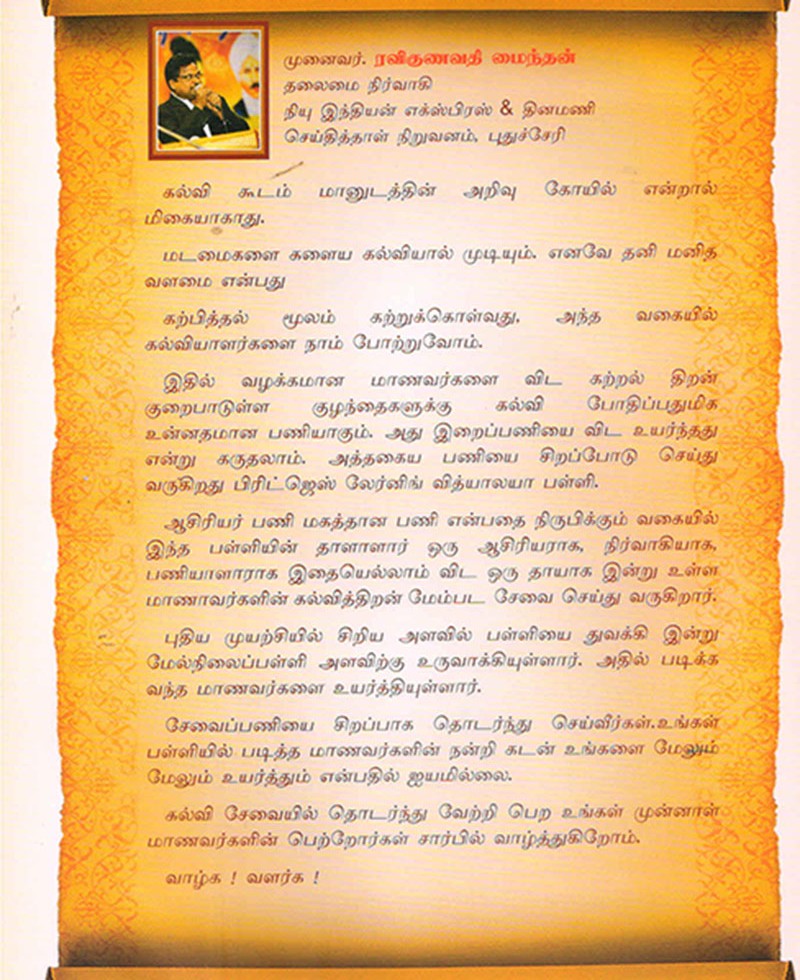 முனைவர். ரவிகுணவதி மைந்தன்
தலைமை நிர்வாகி
நியு இந்தியன் எக்ஸ்பிரஸ் & தினமணி
செய்தித்தாள் நிறுவனம், புதுச்சேரி
கல்வி கூடம் மானுடத்தின் அறிவு கோயில் என்றால்
மிகையாகாது.
மடமைகளை களைய கல்வியால் முடியும். எனவே தனி மனித
வளமை என்பது
கற்பித்தல் மூலம் கற்றுக்கொள்வது, அந்த வகையில்
கல்வியாளர்களை நாம் போற்றுவோம்.
இதில் வழக்கமான மாணவர்களை விட கற்றல் திறன்
குறைபாடுள்ள குழந்தைகளுக்கு கல்வி போதிப்பதுமிக
உன்னதமான பணியாகும். அது இறைப்பணியை விட உயர்ந்தது
என்று கருதலாம். அத்தகைய பணியை சிறப்போடு செய்து
வருகிறது பிரிட்ஜெஸ் லேர்னிங் வித்யாலயா பள்ளி.
ஆசிரியர் பணி மகத்தான பணி என்பதை நிருபிக்கும் வகையில்
இந்த பள்ளியின் தாளாளார் ஒரு ஆசிரியராக, நிர்வாகியாக,
பணியாளாராக இதையெல்லாம் விட ஒரு தாயாக இன்று உள்ள
மாணாவர்களின் கல்வித்திறன் மேம்பட சேவை செய்து வருகிறார்.
புதிய முயற்சியில் சிறிய அளவில் பள்ளியை துவக்கி இன்று
மேல்நிலைப்பள்ளி அளவிற்கு உருவாக்கியுள்ளார். அதில் படிக்க
வந்த மாணவர்களை உயர்த்தியுள்ளார்.
சேவைப்பணியை சிறப்பாக தொடர்ந்து செய்வீர்கள்.உங்கள்
பள்ளியில் படித்த மாணவர்களின் நன்றி கடன் உங்களை மேலும்
மேலும் உயர்த்தும் என்பதில் ஐயமில்லை.
கல்வி சேவையில் தொடர்ந்து வேற்றி பெற உங்கள் முன்னாள்
மாணவர்களின் பெற்றோர்கள் சார்பில் வாழ்த்துகிறோம்.
வாழ்க ! வளர்க !